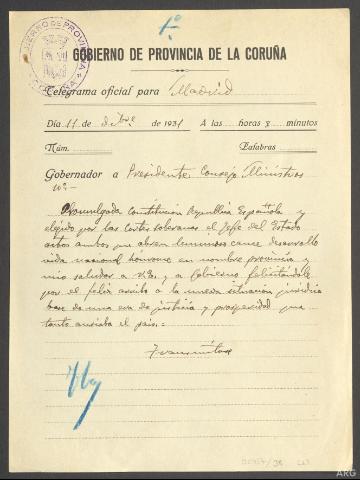 1º
GOBIERNO DE PROVINCIA
CORUÑA
GOBIERNO DE PROVINCIA DE LA CORUÑA
Telegrama oficial para Madrid
Día 11 de dbre de 1931 A las horas y minutos
Núm. Palabras
Gobernador a Presidente Consejo Ministros
Nº-
Promulgada Constitución Republica Española y
elegido por las Cortes soberanas el Jefe del Estado
actos ambos que abren luminoso cauce desarrollo
vida nacional honrome en nombre provincia y
mio saludar a V.E. y a Gobierno felicitandole
por el feliz arribo a la nueva situación juridica
base de una era de justicia y prosperidad que
tanto ansiaba el pais.=
ARG